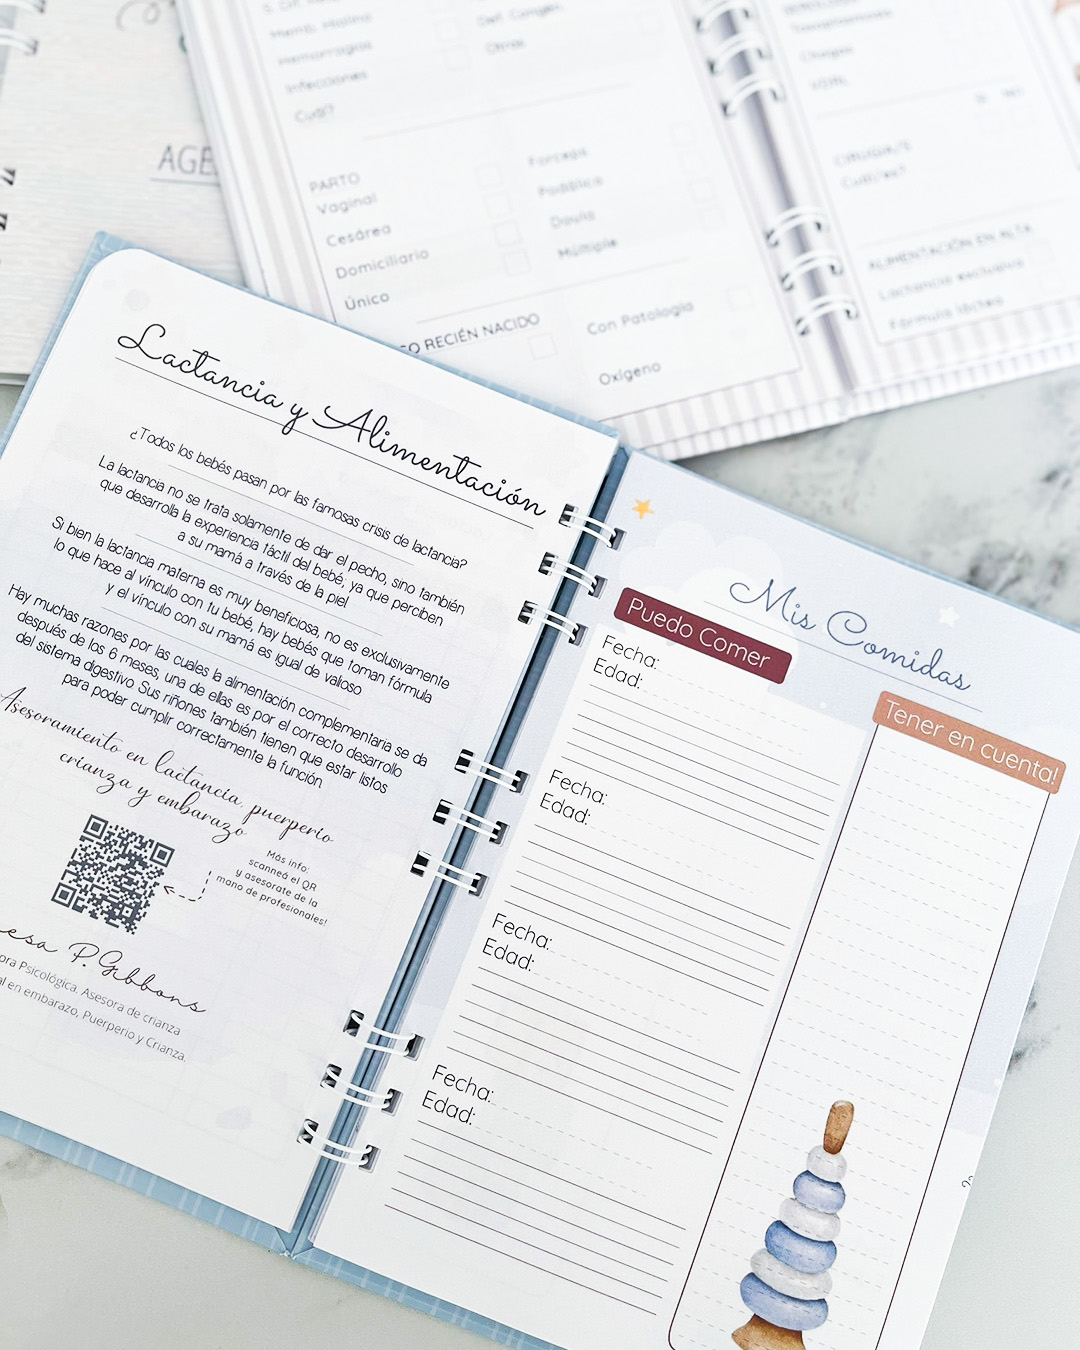 Hemorragias
Infecciones
Cuál?
Otros
PARTO
Vaginal
Cesárea
Domiciliario
Único
Forceps
Podálica
Doula
Múltiple
RECIÉN NACIDO
Con Patología
Oxígeno
Chagas
VDRL
CIRUGIA/S
Cuál/es?
ALIMENTACIÓN EN ALTA
Lactancia exclusiva
Fórmula láctea
Lactancia y Alimentación
¿Todos los bebés pasan por las famosas crisis de lactancia?
La lactancia no se trata solamente de dar el pecho, sino también
que desarrolla la experiencia táctil del bebé, ya que perciben
a su mamá a través de la piel
Si bien la lactancia materna es muy beneficiosa, no es exclusivamente
lo que hace al vínculo con tu bebé, hay bebés que toman fórmula
y el vínculo con su mamá es igual de valioso
Hay muchas razones por las cuales la alimentación complementaria se da
después de los 6 meses, una de ellas es por el correcto desarrollo
del sistema digestivo. Sus riñones también tienen que estar listos
para poder cumplir correctamente la función.
Asesoramiento en lactancia, puerperio
crianza y embarazo
Más info:
scanneá el QR
y asesorate de la
mano de profesionales!
P. Gibbons
Psicológica. Asesora de crianza
en embarazo, Puerperio y Crianza.
Mis Comidas
Puedo Comer
Fecha:
Edad:
Fecha:
Edad:
Fecha:
Edad:
Fecha:
Edad:
Tener en cuenta!